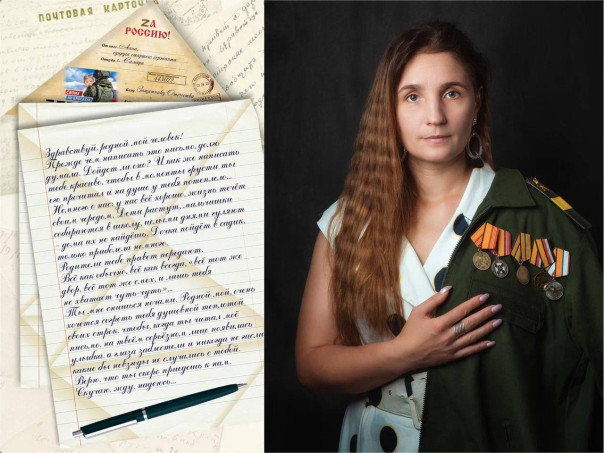 ПОЧТОВАЯ КАРТОЧ
ZА
РОССИЮ!
От кого: Анна,
супруга старшего сержанта
Откуда: г. Самара
Кому: Защитнику Отечества
Здравствуй, родной мой человек!
Прежде чем написать это письмо, долго
думала. Дойдет ли оно? И как же написать
тебе красиво, чтобы в моменты грусти ты
его прочитал и на душе у тебя потеплело...
Немного о нас: у нас всё хорошо, жизнь течёт
своим чередом. Дети растут, мальчишки
собираются в школу, целыми днями гуляют
- дома их не найдёшь. Дочка пойдёт в садик,
только приболела немного.
Родители тебе привет передают.
Всё как обычно, всё как всегда: «всё тот же
двор, всё тот же смех, и лишь тебя
не хватает чуть-чуть»...
Ты мне снишься ночами. Родной мой, очень
хочется согреть тебя душевной теплотой
своих строк, чтобы, когда ты читал моё
письмо, на твоём серьёзном лице появилась
улыбка, а глаза заблестели и никогда не гасли
какие бы невзгоды не случались с тобой.
Верю, что ты скоро приедешь к нам.
Скучаю, жду, надеюсь...